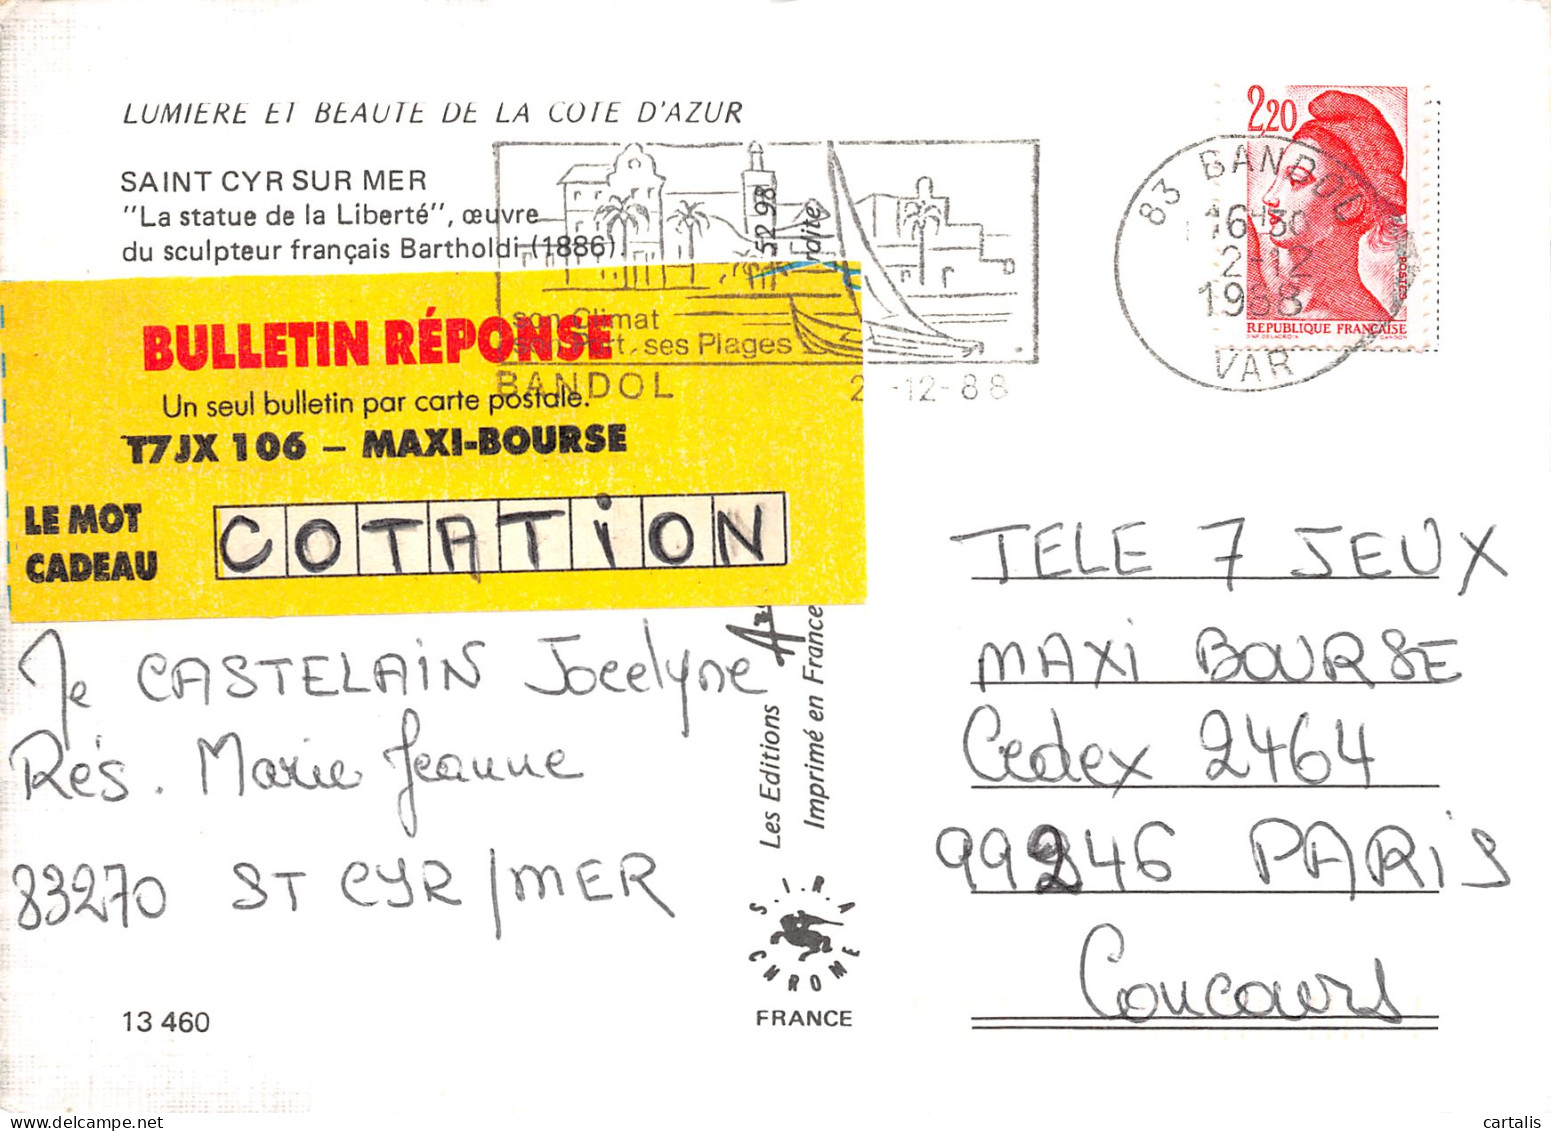 LUMIERE ET BEAUTE DE LA COTE D'AZUR
SAINT CYR SUR MER
"La statue de la Liberté", œuvre
du sculpteur français Bartholdi (1886).
52 98
2,20
POSTES
REPUBLIQUE FRANÇAISE
D'AP. DELACROIX GANDON
83 BANDOL
16H30
2-12
1988
VAR
son Climat
son Port, ses Plages
BANDOL
2 -12-88
BULLETIN RÉPONSE
Un seul bulletin par carte postale.
T7JX 106 – MAXI-BOURSE
LE MOT
CADEAU
COTATiON
Je CASTELAiN Jocelyne
Rés. Marie Jeanne
83270 ST CYR/MER
13 460
Les Editions
Imprimé en France
S.I.R.A
CHROME
FRANCE
TELE 7 JEUX
MAXi BOURSE
Cedex 2464
99246 PARiS
Concours
delcampe.net
cartalis